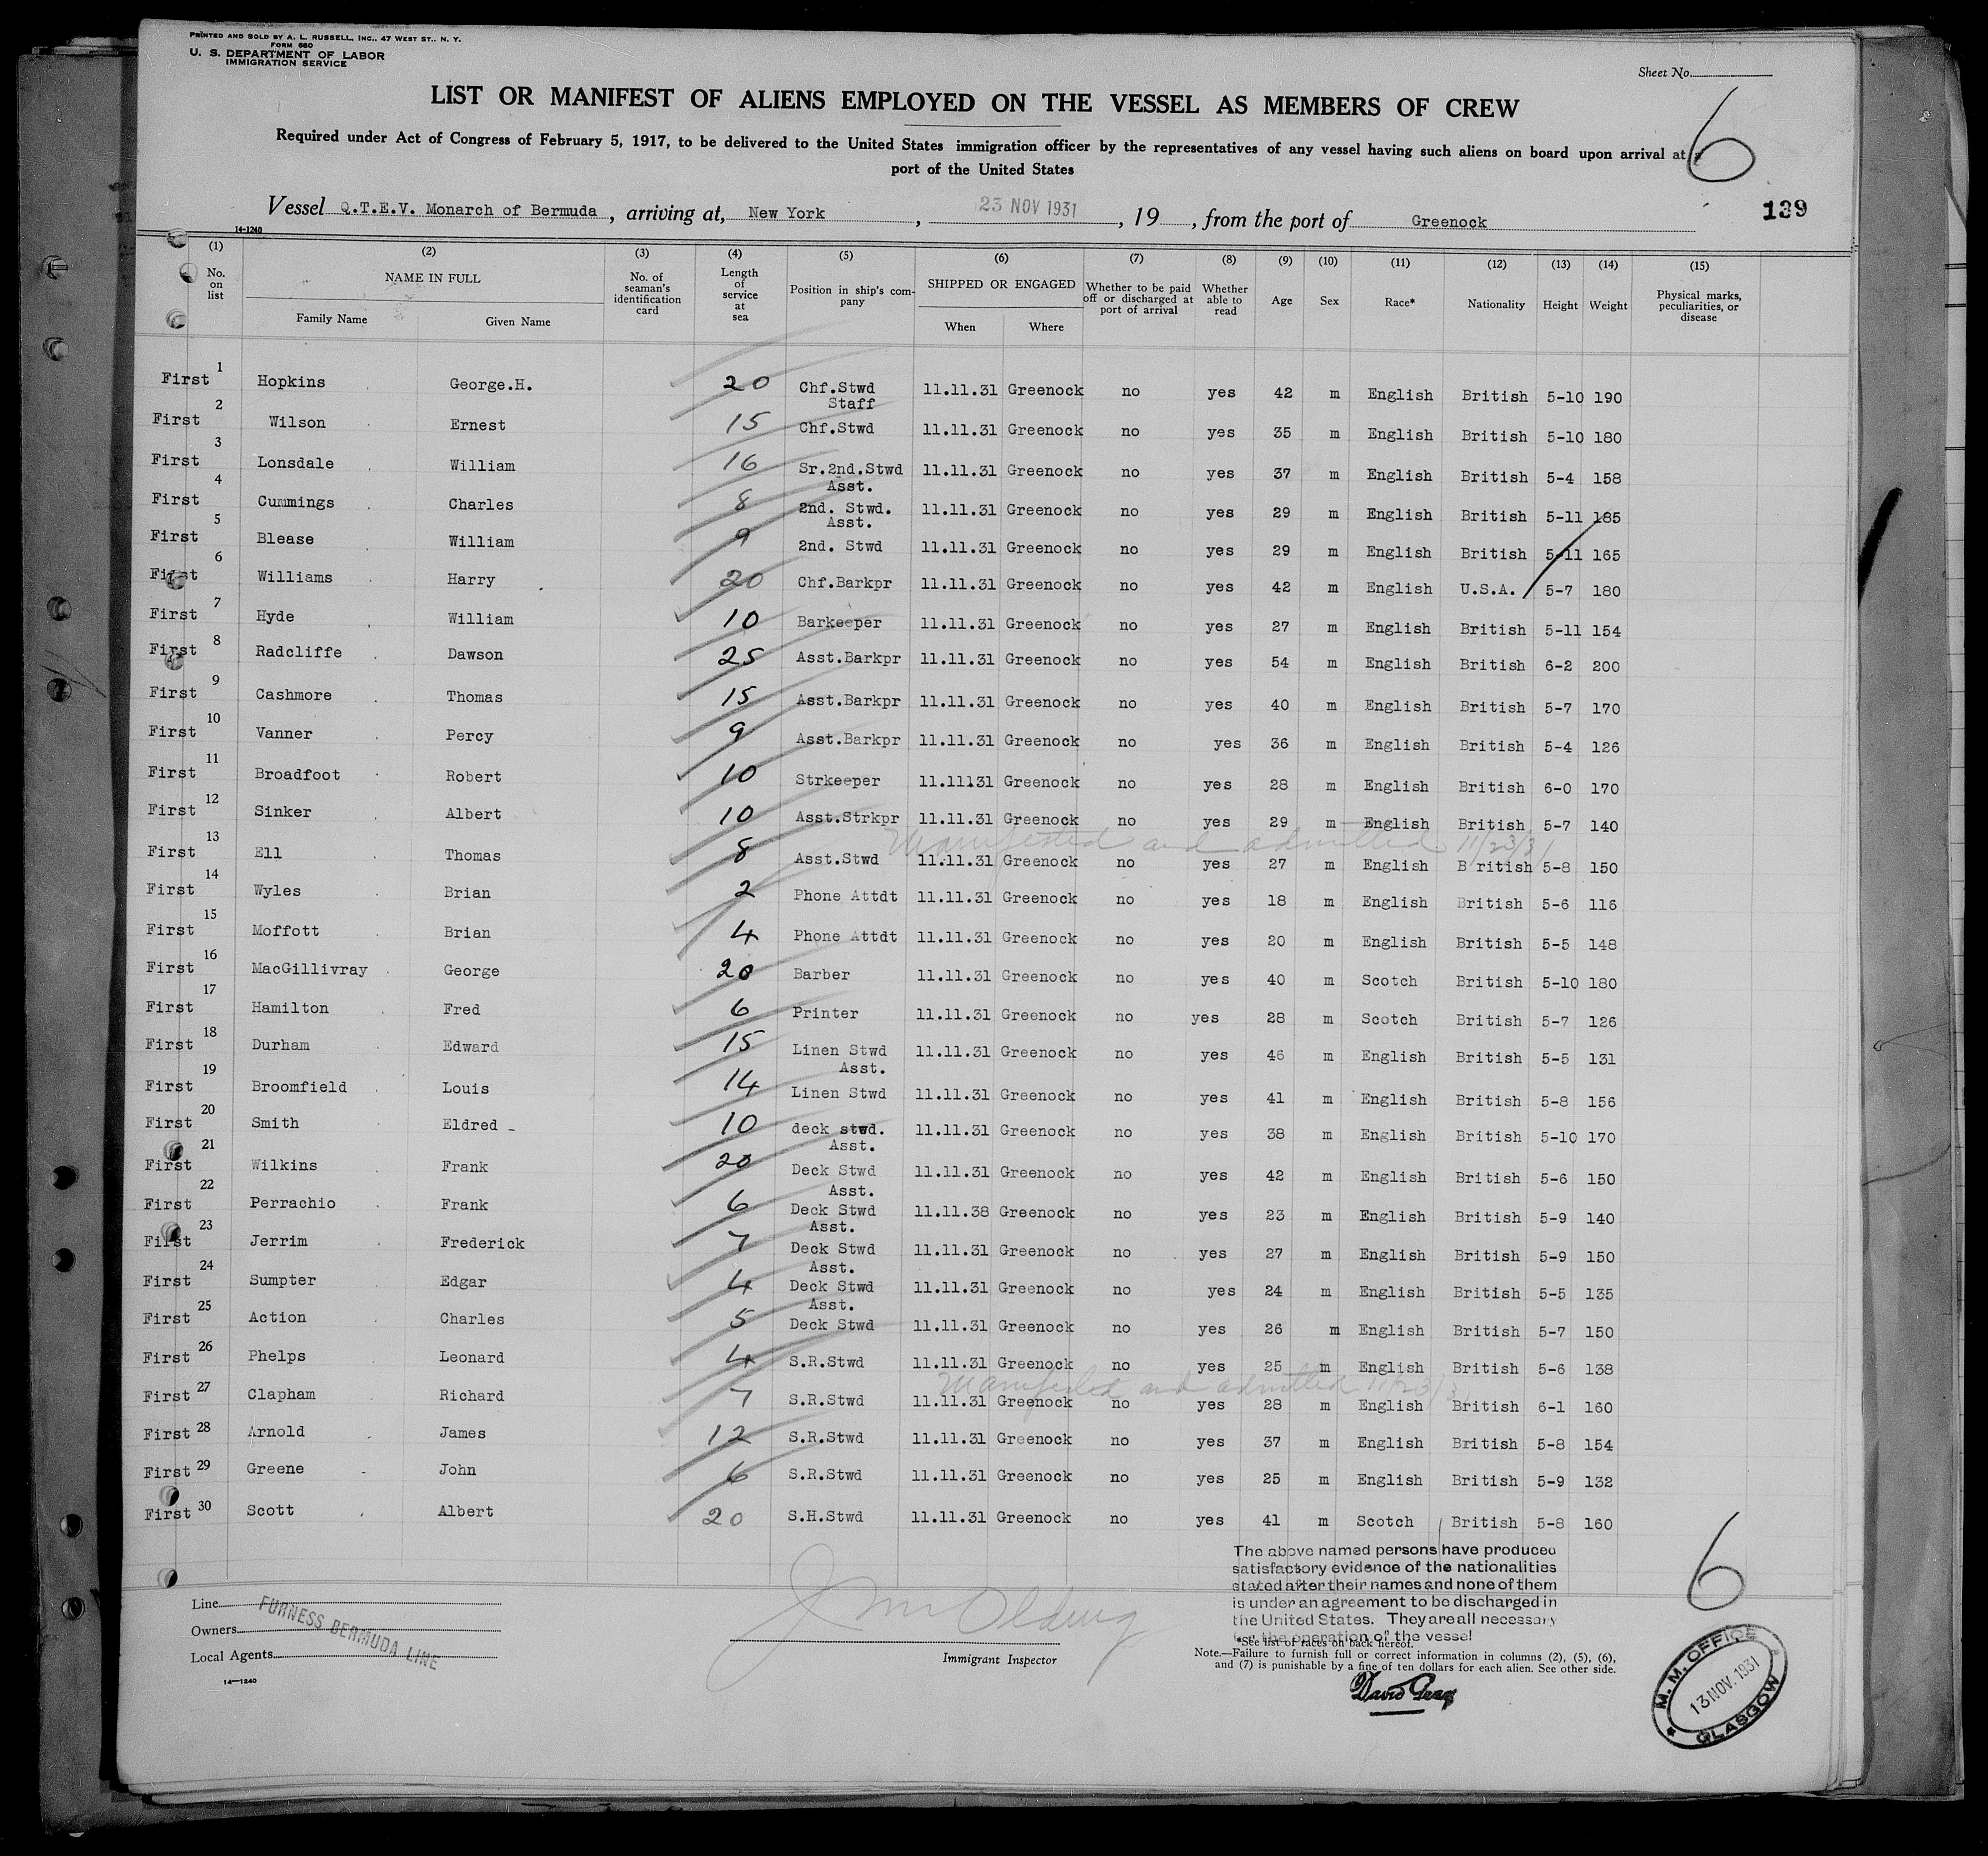 PRINTED AND SOLD BY A. L. RUSSELL, INC., 47 WEST ST., N. Y.
FORM 680
U. S. DEPARTMENT OF LABOR
IMMIGRATION SERVICE
Sheet No.
LIST OR MANIFEST OF ALIENS EMPLOYED ON THE VESSEL AS MEMBERS OF CREW
6
Required under Act of Congress of February 5, 1917, to be delivered to the United States immigration officer by the representatives of any vessel having such aliens on board upon arrival at a
port of the United States
Vessel Q.T.E.V. Monarch of Bermuda, arriving at, New York, 23 NOV 1931, 19, from the port of Greenock
139
14-1240
(1) (2) (3) (4) (5) (6) (7) (8) (9) (10) (11) (12) (13) (14) (15)
No. on list NAME IN FULL Family Name Given Name No. of seaman's identification card Length of service at sea Position in ship's company SHIPPED OR ENGAGED When Where Whether to be paid off or discharged at port of arrival Whether able to read Age Sex Race* Nationality Height Weight Physical marks, peculiarities, or disease
First 1 Hopkins George.H. 20 Chf.Stwd 11.11.31 Greenock no yes 42 m English British 5-10 190
First 2 Wilson Ernest 15 Staff Chf.Stwd 11.11.31 Greenock no yes 35 m English British 5-10 180
First 3 Lonsdale William 16 Sr.2nd.Stwd 11.11.31 Greenock no yes 37 m English British 5-4 158
First 4 Cummings Charles 8 Asst. 2nd. Stwd. 11.11.31 Greenock no yes 29 m English British 5-11 185
First 5 Blease William 9 Asst. 2nd. Stwd 11.11.31 Greenock no yes 29 m English British 5-11 165
First 6 Williams Harry 20 Chf.Barkpr 11.11.31 Greenock no yes 42 m English U.S.A. 5-7 180
First 7 Hyde William 10 Barkeeper 11.11.31 Greenock no yes 27 m English British 5-11 154
First 8 Radcliffe Dawson 25 Asst.Barkpr 11.11.31 Greenock no yes 54 m English British 6-2 200
First 9 Cashmore Thomas 15 Asst.Barkpr 11.11.31 Greenock no yes 40 m English British 5-7 170
First 10 Vanner Percy 9 Asst.Barkpr 11.11.31 Greenock no yes 36 m English British 5-4 126
First 11 Broadfoot Robert 10 Strkeeper 11.11131 Greenock no yes 28 m English British 6-0 170
First 12 Sinker Albert 10 Asst.Strkpr 11.11.31 Greenock no yes 29 m English British 5-7 140
Manifested and admitted 11/23/31
First 13 Ell Thomas 8 Asst.Stwd 11.11.31 Greenock no yes 27 m English B ritish 5-8 150
First 14 Wyles Brian 2 Phone Attdt 11.11.31 Greenock no yes 18 m English British 5-6 116
First 15 Moffott Brian 4 Phone Attdt 11.11.31 Greenock no yes 20 m English British 5-5 148
First 16 MacGillivray George 20 Barber 11.11.31 Greenock no yes 40 m Scotch British 5-10 180
First 17 Hamilton Fred 6 Printer 11.11.31 Greenock no yes 28 m Scotch British 5-7 126
First 18 Durham Edward 15 Linen Stwd 11.11.31 Greenock no yes 46 m English British 5-5 131
First 19 Broomfield Louis 14 Asst. Linen Stwd 11.11.31 Greenock no yes 41 m English British 5-8 156
First 20 Smith Eldred 10 deck stwd. 11.11.31 Greenock no yes 38 m English British 5-10 170
First 21 Wilkins Frank 20 Asst. Deck Stwd 11.11.31 Greenock no yes 42 m English British 5-6 150
First 22 Perrachio Frank 6 Asst. Deck Stwd 11.11.38 Greenock no yes 23 m English British 5-9 140
First 23 Jerrim Frederick 7 Asst. Deck Stwd 11.11.31 Greenock no yes 27 m English British 5-9 150
First 24 Sumpter Edgar 4 Asst. Deck Stwd 11.11.31 Greenock no yes 24 m English British 5-5 135
First 25 Action Charles 5 Asst. Deck Stwd 11.11.31 Greenock no yes 26 m English British 5-7 150
First 26 Phelps Leonard 4 S.R.Stwd 11.11.31 Greenock no yes 25 m English British 5-6 138
Manifested and admitted 11/23/31
First 27 Clapham Richard 7 S.R.Stwd 11.11.31 Greenock no yes 28 m English British 6-1 160
First 28 Arnold James 12 S.R.Stwd 11.11.31 Greenock no yes 37 m English British 5-8 154
First 29 Greene John 6 S.R.Stwd 11.11.31 Greenock no yes 25 m English British 5-9 132
First 30 Scott Albert 20 S.H.Stwd 11.11.31 Greenock no yes 41 m Scotch British 5-8 160
The above named persons have produced
satisfactory evidence of the nationalities
stated after their names and none of them
is under an agreement to be discharged in
the United States. They are all necessary
for the operation of the vessel
6
Line
Owners
Local Agents
FURNESS BERMUDA LINE
14-1240
Immigrant Inspector
*See list of races on back hereof.
Note.—Failure to furnish full or correct information in columns (2), (5), (6),
and (7) is punishable by a fine of ten dollars for each alien. See other side.
David
M. M. OFFICE
13 NOV. 1931
GLASGOW